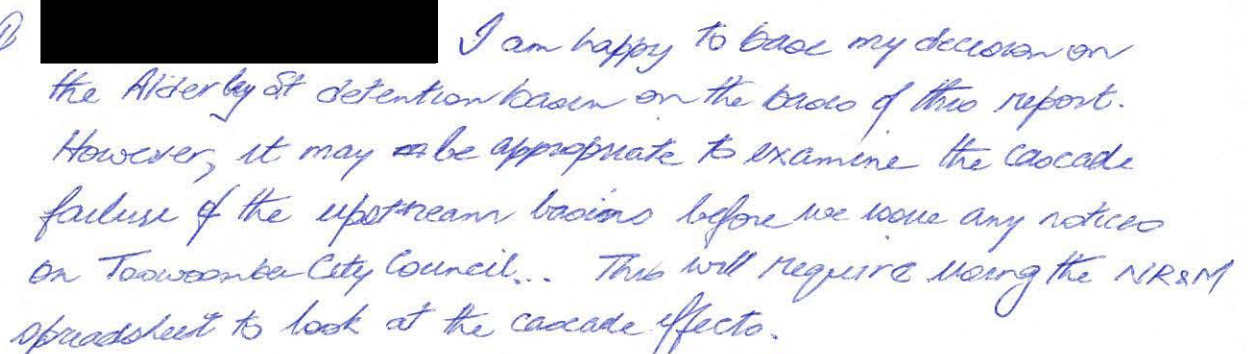 ① I am happy to base my decision on
the Alderley St detention basin on the basis of this report.
However, it may be appropriate to examine the cascade
failure of the upstream basins before we issue any notices
on Toowoomba City Council... This will require using the NR&M
spreadsheet to look at the cascade effects.